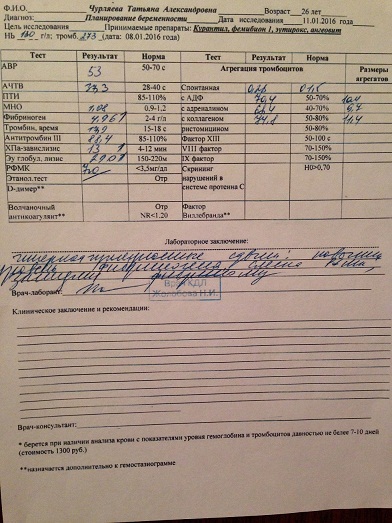 Ф.И.О. Чурляева Татьяна Александровна Возраст 26 лет
Диагноз: Планирование беременности Дата исследования 11.01.2016 год
Цель исследования Принимаемые препараты: Курантил, фемибион 1, эутирокс, ангиовит
Hb 130 г/л; тромб. 273 (дата: 08.01.2016 года)
Тест Результат Норма Тест Результат Норма Размеры агрегатов
АВР 53 50-70 с Агрегация тромбоцитов
АЧТВ 28-40 с Спонтанная
ПТИ 85-110% с АДФ 50-70%
МНО 1,08 0,9-1,2 с адреналином 40-70%
Фибриноген 2-4 г/л с коллагеном 50-80% 11,4
Тромбин, время 15-18 с ристомицином 50-80%
Антитромбин III 88,4 85-110% Фактор XIII 50-100 с
ХПа-завислизис 13 4-12 мин VIII фактор 70-150%
Эу глобул, лизис 150-220м IX фактор 70-150%
РФМК 7,0 <3,5мг/дл Скрининг нарушений в системе протеина С Н0>0,70
Этанол.тест Отр
D-димер**
Волчаночный антикоагулянт** Отр NR<1.20 Фактор Виллебранда**
Лабораторное заключение:
Врач-лаборант:
Врач КДЛ
Клиническое заключение и рекомендации:
Врач-консультант:
* берется при наличии анализа крови с показателями уровня гемоглобина и тромбоцитов давностью не более 7-10 дней
(стоимость 1300 руб.)
**назначается дополнительно к гемостазиограмме